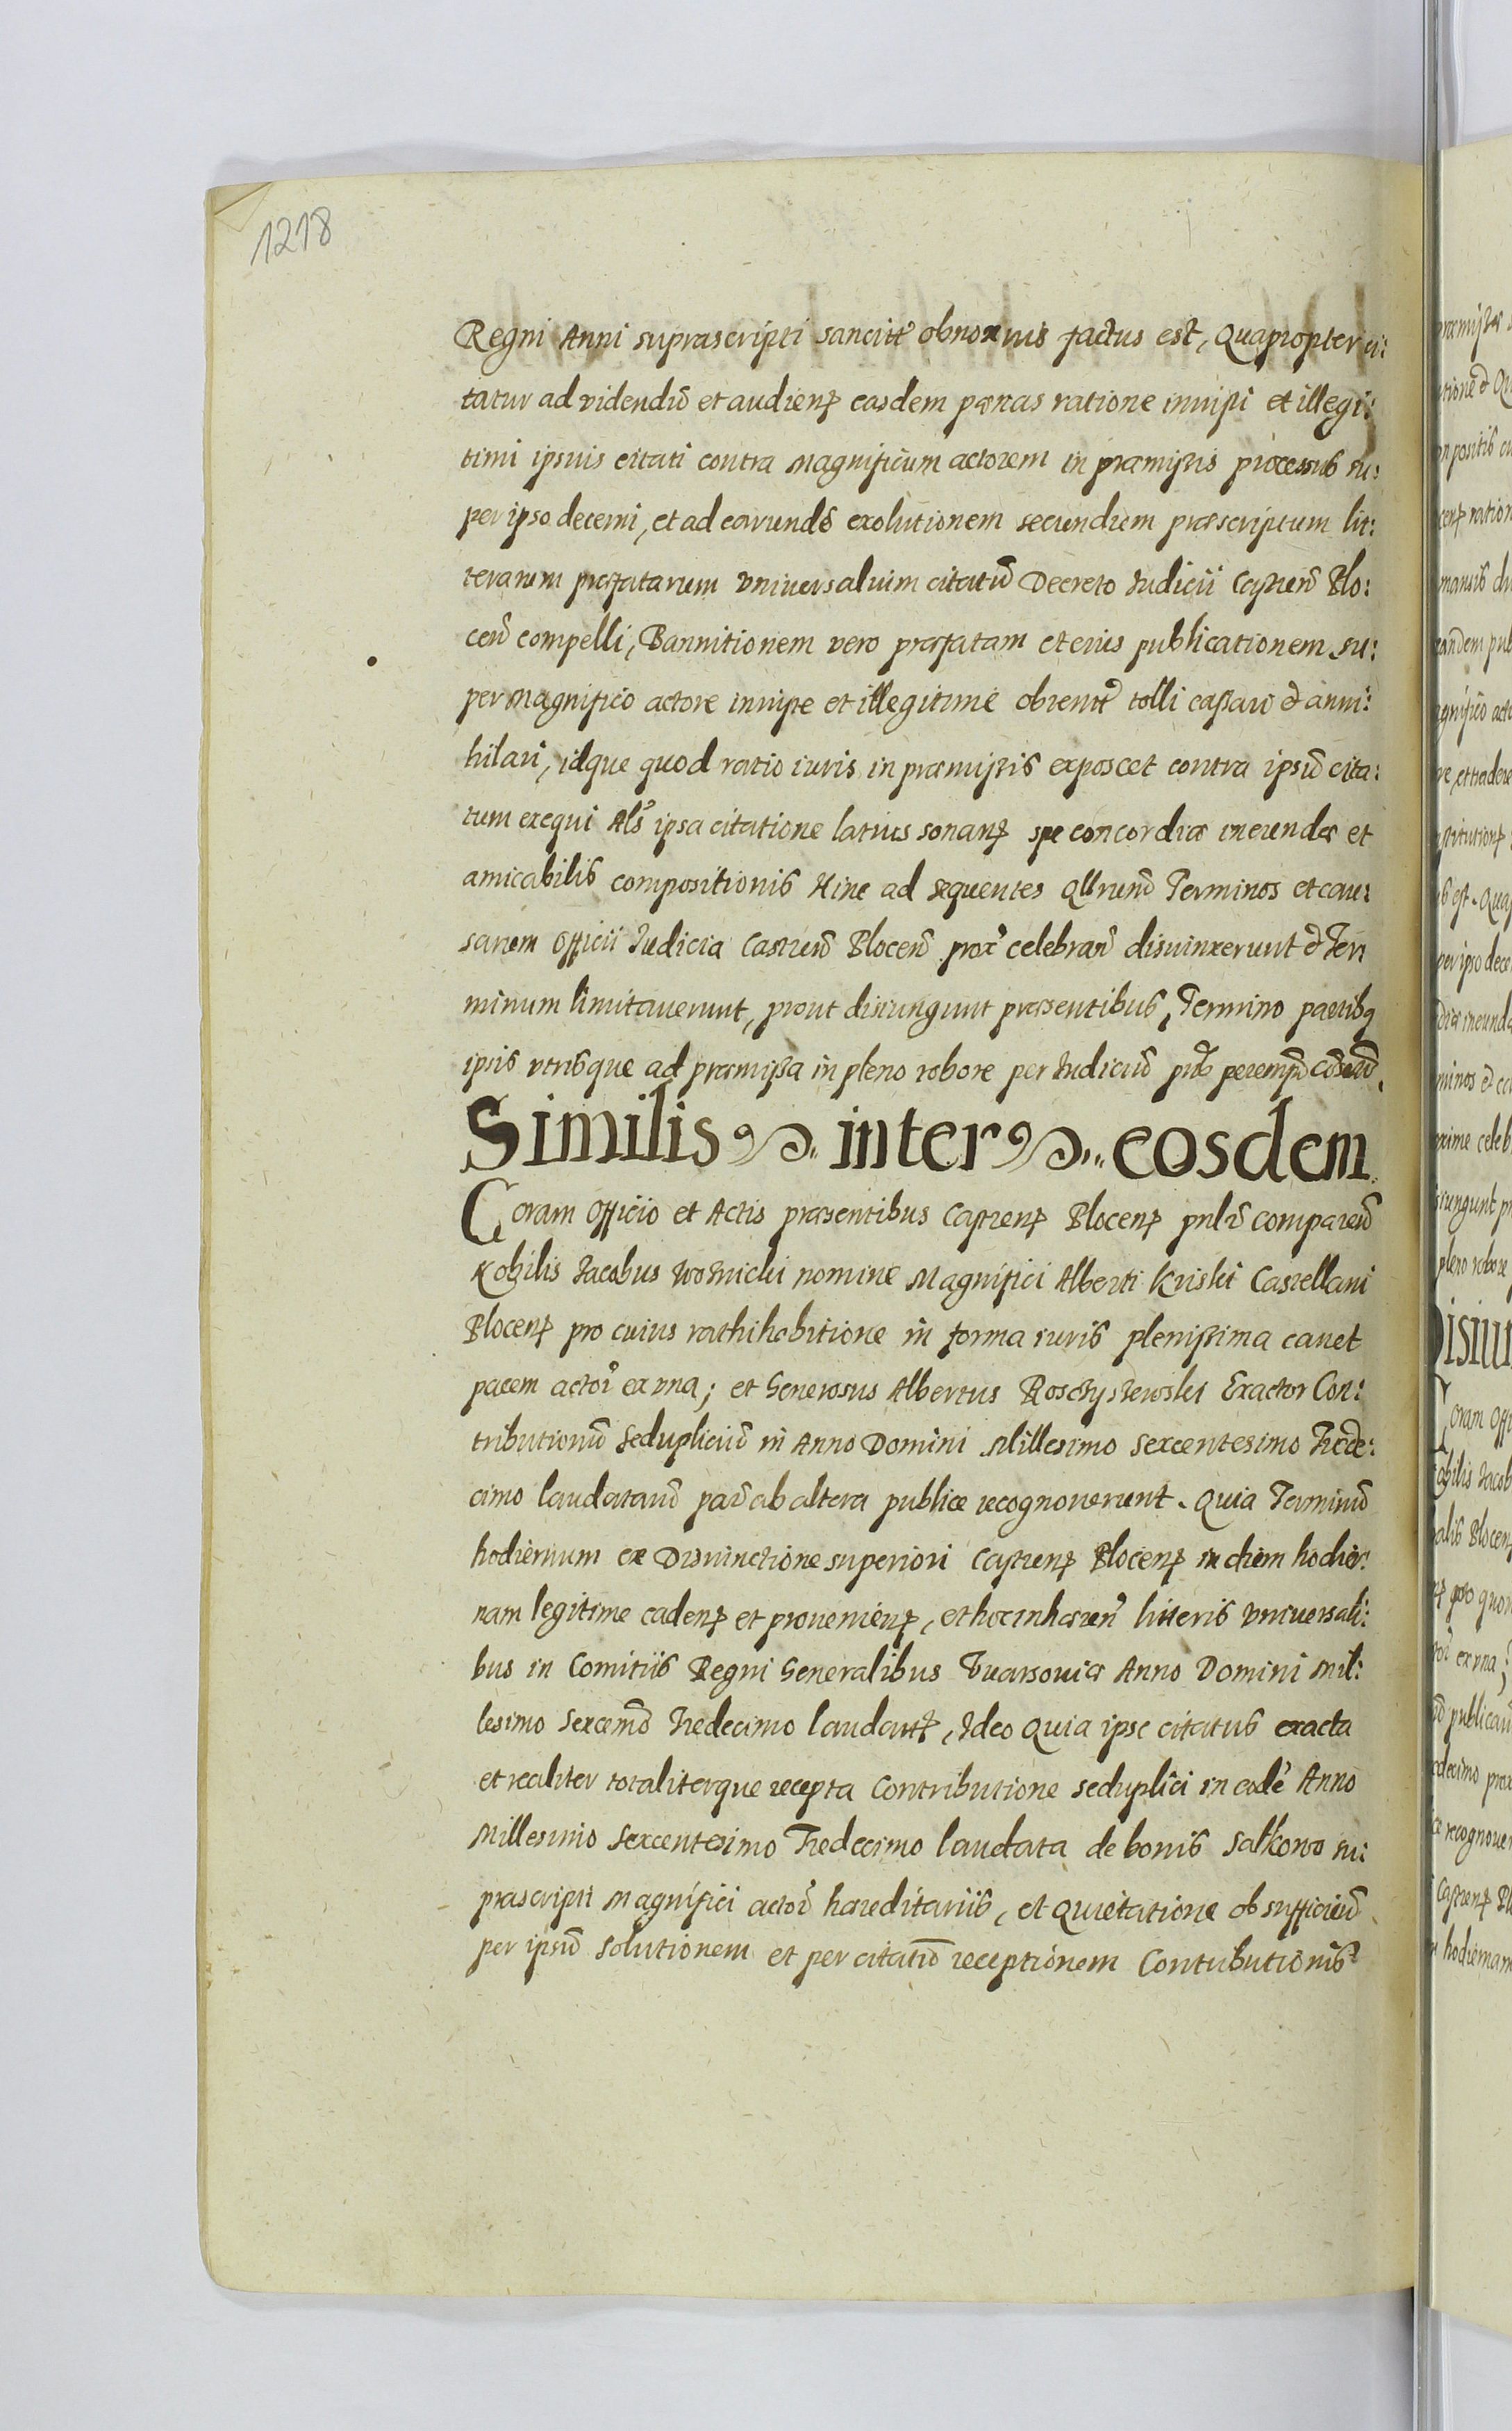 1218
Regni Anni suprascripti sancitē obnoxius factus est, Quapropter ci:
tatur ad videndū et audienꝭ easdem pœnas ratione iniusti et illegi:
timi ipsius citati contra Magnificum actorem in præmissis processus su:
per ipso decerni, et ad earundē exolutionem secundum præscriptum lit:
terarum præfatarum vniversalium citatū Decreto Iudicii Castreñ Plo:
ceñ compelli, Bannitionem vero præfatam et eius publicationem su:
per Magnifico actore iniuste et illegitime obtent tolli cassari & anni:
hilari, idque quod ratio iuris in præmissis exposcet contra ipsū cita:
tum exequi Als ipsa citatione latius sonanꝭ spe concordiæ ineundæ et
amicabilis compositionis Hinc ad sequentes Terminos et cau:
sarum Officii Iudicia Castreñ Ploceñ prox celebrañ disiunxerunt & Ter
minum limitaverunt, prout disiungunt præsentibus, Termino partibꝫ
ipsis vtrisque ad præmissa in pleno robore per Iudiciū peremp
Similis inter eosdem
Coram Officio et Actis præsentibus Castrenꝭ Plocenꝭ comparen̄
Nobilis Iacobus nomine Magnifici Alberti Kriski Castellani
Plocenꝭ pro cuius rathihabitione in forma iuris plenissima cavet
pacem actor ex vna; et Generosus Albertus Exactor Con:
tributionū Sedupliciū in Anno Domini Millesimo Sexcentesimo Trede:
cimo laudatarū par ab altera publice recognoverunt. Quia Terminū
hodiernum ex Disiunctione superiori Castrenꝭ Plocenꝭ in diem hodier:
nam legitime cadenꝭ et provenienꝭ, et hoc inhæren litteris vniversali:
bus in Comitiis Regni Generalibus Varsoviæ Anno Domini Mil:
lesimo Sexcenmo Tredecimo laudatꝭ, Ideo Quia ipse citatus exacta
et realiter totaliterque recepta Contributione seduplici in eodē Anno
Millesimo Sexcentesimo Tredecimo laudata de bonis Salkowo su:
prascripti Magnifici actor hæreditariis, et Quietatione ob sufficien̄
per ipsū solutionem et per citatū receptionem Contributionis